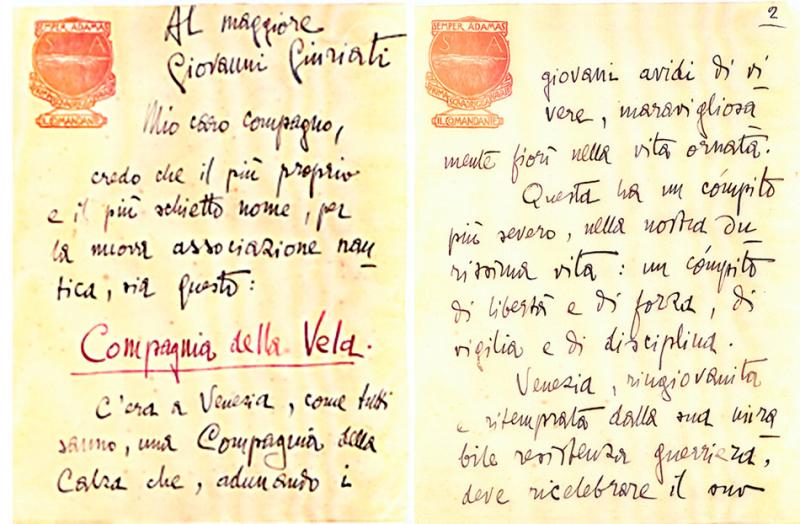 SEMPER ADAMAS
S A
IL COMANDANTE
Al maggiore
Giovanni Giuriati
Mio caro compagno,
credo che il più proprio
e il più schietto nome, per
la nuova associazione nau
tica, sia questo:
Compagnia della Vela.
C'era a Venezia, come tutti
sanno, una Compagnia della
Calza che, adunando i
2
SEMPER ADAMAS
S A
IL COMANDANTE
giovani avidi di vi
vere, maravigliosa
mente fiorì nella vita ornata.
Questa ha un cómpito
più severo, nella nostra du
rissima vita: un cómpito
di libertà e di forza, di
vigilia e di disciplina.
Venezia, ringiovanita
e ritemprata dalla sua mira
bile resistenza guerriera,
deve ricelebrare il suo